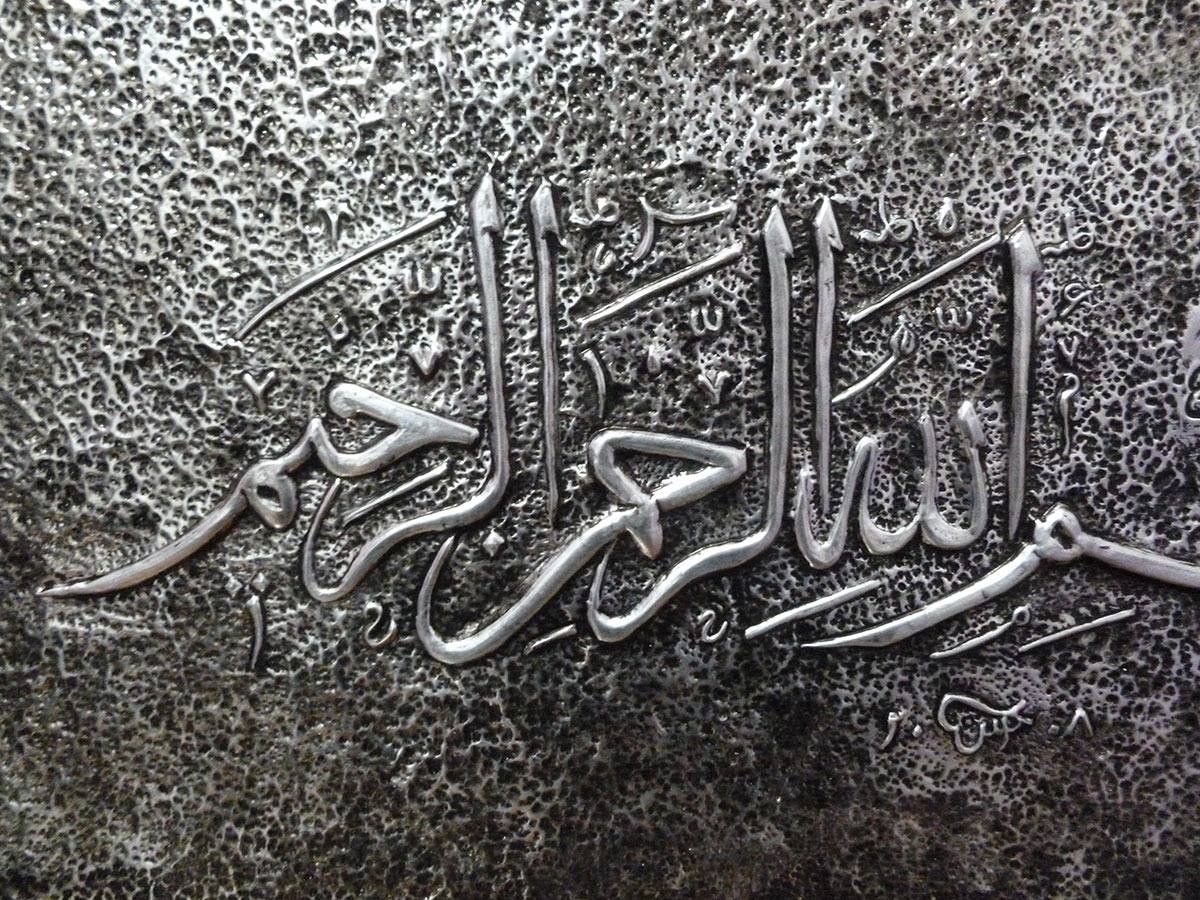 ـم الله الرحمن الرحيم
٢٠ ٠٨